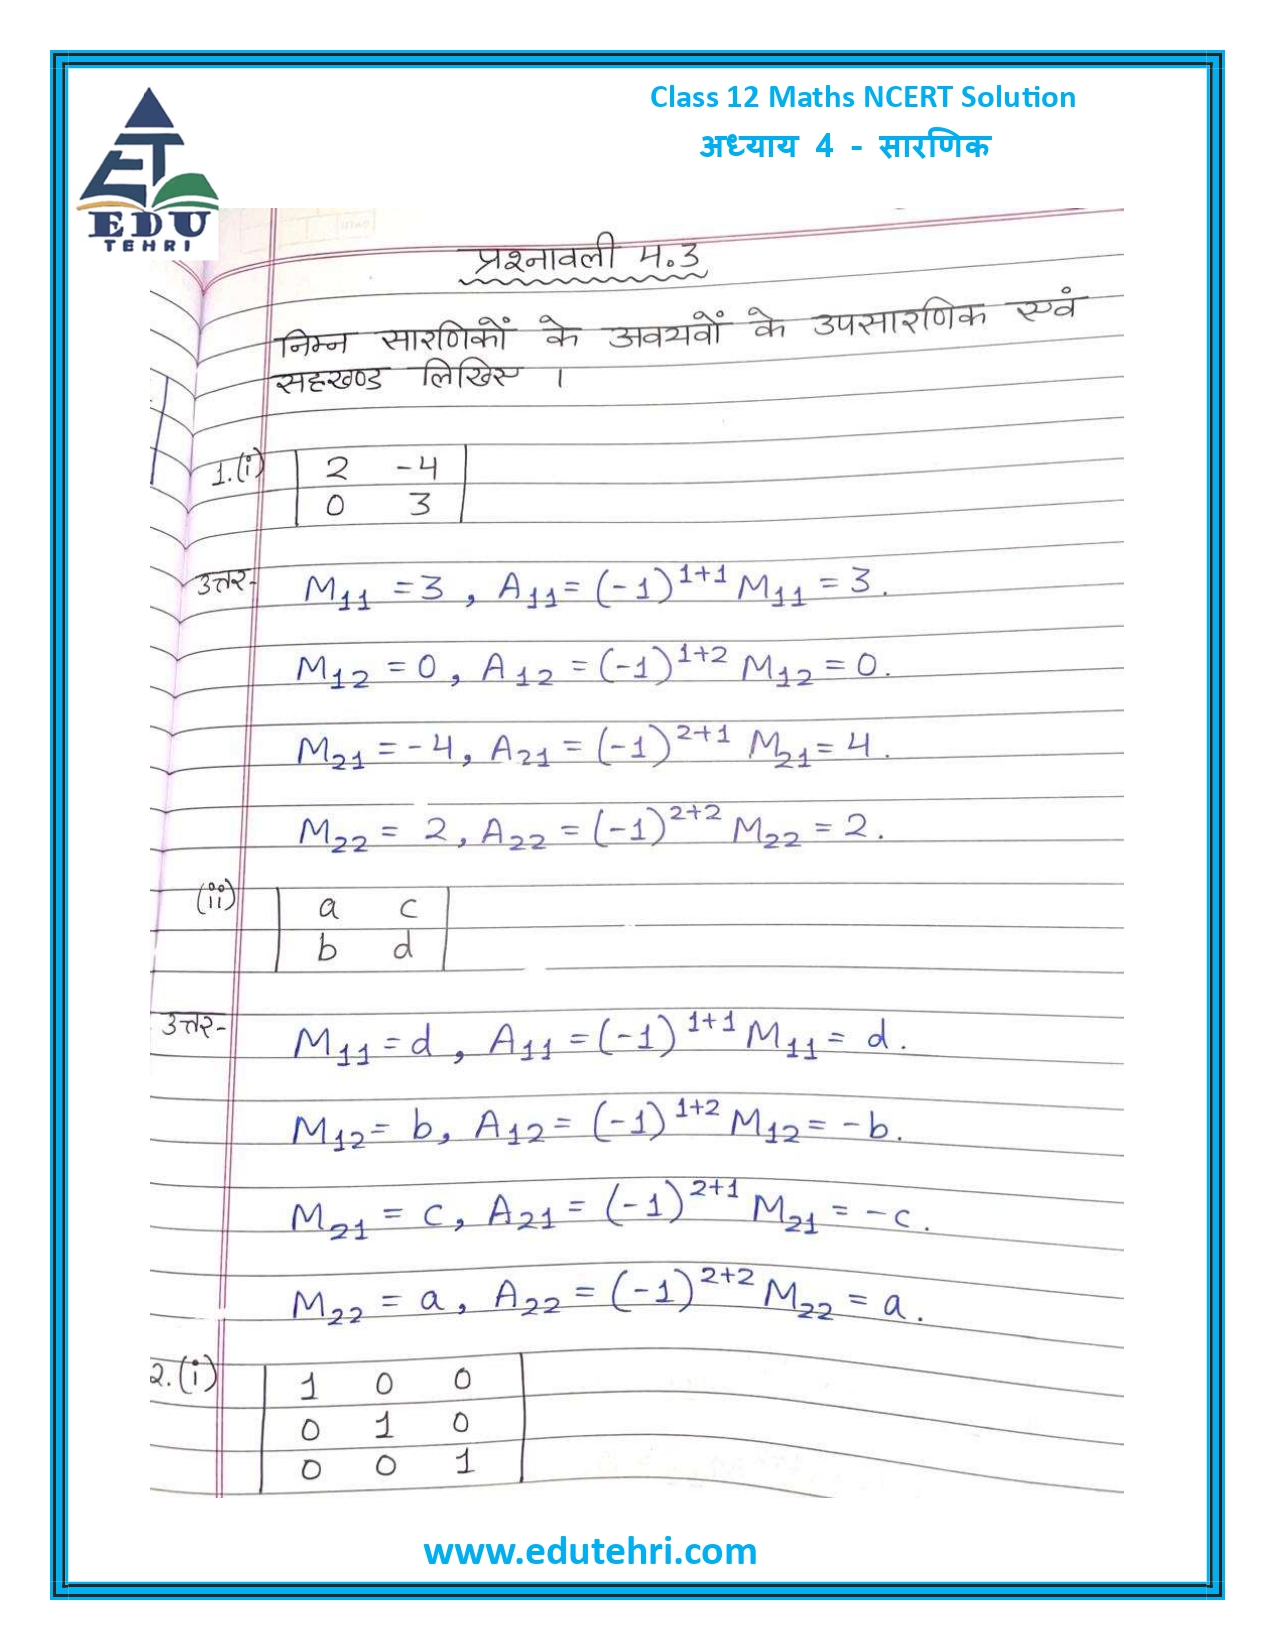 Class 12 Maths NCERT Solution
अध्याय 4 - सारणिक
EDU
TEHRI
प्रश्नावली 4.3
निम्न सारणिकों के अवयवों के उपसारणिक एवं
सहखण्ड लिखिए ।
1.(i) | 2 -4 |
| 0 3 |
उत्तर- M₁₁ = 3 , A₁₁ = (-1)¹⁺¹ M₁₁ = 3 .
M₁₂ = 0 , A₁₂ = (-1)¹⁺² M₁₂ = 0 .
M₂₁ = -4 , A₂₁ = (-1)²⁺¹ M₂₁ = 4 .
M₂₂ = 2 , A₂₂ = (-1)²⁺² M₂₂ = 2 .
(ii) | a c |
| b d |
उत्तर- M₁₁ = d , A₁₁ = (-1)¹⁺¹ M₁₁ = d .
M₁₂ = b , A₁₂ = (-1)¹⁺² M₁₂ = -b .
M₂₁ = c , A₂₁ = (-1)²⁺¹ M₂₁ = -c .
M₂₂ = a , A₂₂ = (-1)²⁺² M₂₂ = a .
2.(i) | 1 0 0 |
| 0 1 0 |
| 0 0 1 |
www.edutehri.com